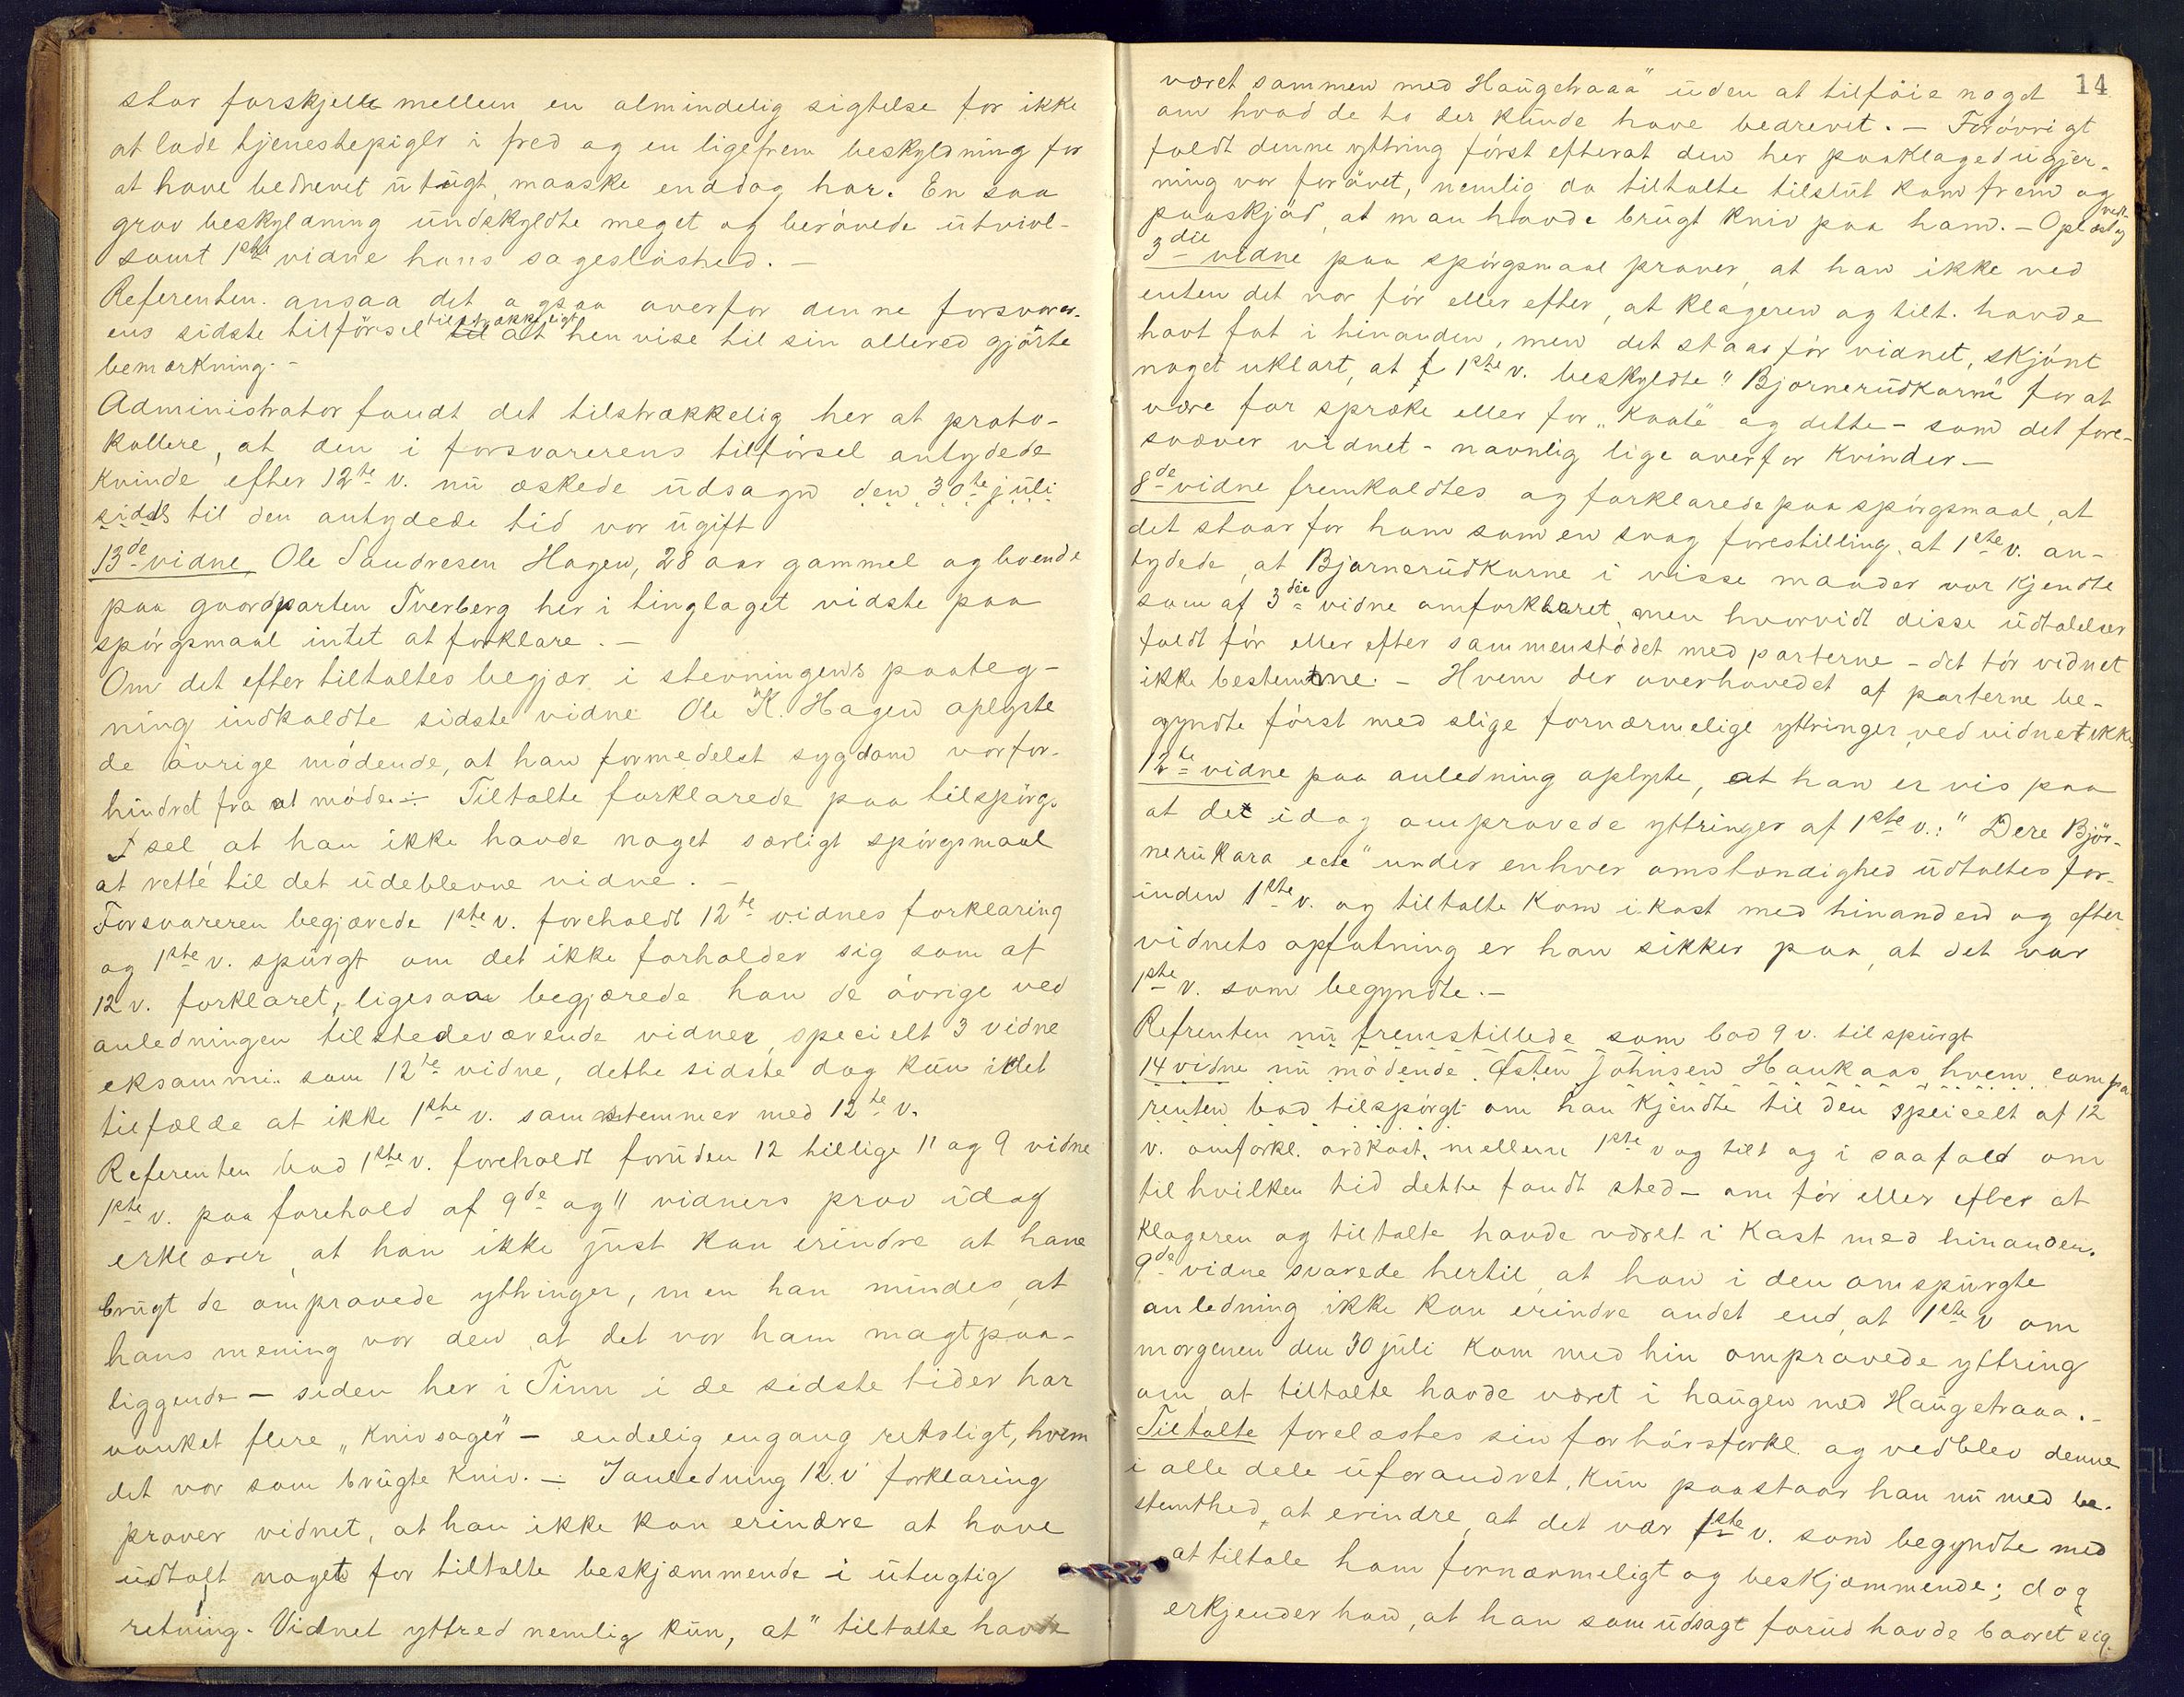 stor forskjell mellem en almindelig sigtelse for ikke
at lade tjenestepiger i fred og en ligefrem beskyldning for
at have bedrevet utugt, maaske enddog hor. En saa
grov beskyldning undskyldte meget og berövede utvivl-
somt 1ste vidne hans sagesløshed. –
Referenten ansaa det ogsaa overfor denne forsvarer-
ens sidste tilförsel tilstrækkeligt at henvise til sin allered gjörte
bemærkning. –
Administrator fandt det tilstrækkelig her at proto-
kollere, at den i forsvarerens tilförsel antydede
kvinde efter 12te v. nu æskede udsagn den 30te juli
sidst til den antydede tid var ugift
13de vidne Ole Sandresen Hagen, 28 aar gammel og boende
paa gaardparten Tverberg her i tinglaget vidste paa
spörgsmaal intet at forklare. –
Om det efter tiltaltes begjær i stevningens paateg-
ning indkaldte sidste vidne Ole K. Hagen oplyste
de övrige mödende, at han formedelst sygdom var for-
hindret fra at möde. – Tiltalte forklarede paa tilspörg-
sel at han ikke havde noget særligt spörgsmaal
at rette til det udeblevne vidne. –
Forsvareren begjærede 1ste v. foreholdt 12te vidnes forklaring
og 1ste v. spurgt om det ikke forholder sig som af
12 v. forklaret, ligesaa begjærede han de övrige ved
anledningen tilstedeværende vidner, specielt 3 vidne
eksammi. som 12te vidne, dette sidste dog kun i det
tilfælde at ikke 1ste v. samstemmer med 12te v.
Referenten bad 1ste v. foreholdt foruden 12 tillige 11 og 9 vidne
1ste v. paa forehold af 9de og 11 vidners prov idag
erklærer, at han ikke just kan erindre at have
brugt de omprovede yttringer, men han mindes, at
hans mening var den, at det var ham magtpaa-
liggende – siden her i Tinn i de sidste tider har
vanket flere „knivsager“ – endelig engang retsligt, hvem
det var som brugte kniv. – I anledning 12. v' forklaring
prover vidnet, at han ikke kan erindre at have
udtalt noget for tiltalte beskjæmmende i utugtig
retning. Vidnet yttred nemlig kun, at "tiltalte havde
14
været sammen med Haugetraaa" uden at tilföie noget
om hvad de to der kunde have bedrevet. – Foróvrigt
faldt denne yttring först efterat den her paaklaged ugjer-
ning var forövet, nemlig da tiltalte tilslut kom frem og
paaskjöd, at man havde brugt kniv paa ham. – Oplæst og vedt.
3die vidne paa spörgsmaal prover, at han ikke ved
enten det var för eller efter, at klageren og tilt. havde
havt fat i hinanden, men det staar för vidnet, skjönt
noget uklart, at 1ste v. beskyldte "Bjornerudkarne" for at
være for spræke eller for „kaate“ og dette – som det fore-
svæver vidnet – navnlig lige overfor kvinder –
8de vidne fremkaldtes og forklarede paa spörgsmaal, at
det staar for ham som en svag forestilling, at 1ste v. an-
tydede, at Bjornerudkarne i visse maader var kjendte
som af 3die vidne omforklaret, men hvorvidt disse udtalelser
faldt för eller efter sammenstödet med parterne – det tör vidnet
ikke bestemme. – Hvem der overhovedet af parterne be-
gyndte först med slige fornærmelige yttringer, ved vidnet ikke.
12te vidne paa anledning oplyste, at han er vis paa
at de idag omprovede yttringer af 1ste v.: "Dere Björ-
nerukara ecte" under enhver omstændighed udtaltes for-
inden 1ste v. og tiltalte kom i kast med hinanden og efter
vidnets opfatning er han sikker paa, at det var
1ste v. som begyndte. –
Refrenten nu fremstillede som bad 9 v. tilspurgt
14 vidne nu mödende Østen Johnsen Haukaas, hvem compa-
renten bad tilspörgt om han kjendte til den speicelt af 12
v. omforkl. ordkast, mellem 1ste v og tilt og i saafald om
til hvilken tid dette fandt sted – om för eller efter at
klageren og tiltalte havde været i kast med hinanden.
9de vidne svarede hertil, at han i den omspurgte
anledning ikke kan erindre andet end, at 1ste v om
morgenen den 30 juli kom med hin omprovede yttring
om, at tiltalte havde været i haugen med Haugetraaa. –
Tiltalte forelæstes sin forhörsforkl. og vedblev denne
i alle dele uforandret, kun paastaar han nu med be-
stemthed, at erindre, at det var 1ste v. som begyndte med
at tiltale ham fornærmeligt og beskjæmmende; dog
erkjender han, at han som udsagt forud havde baaret sig